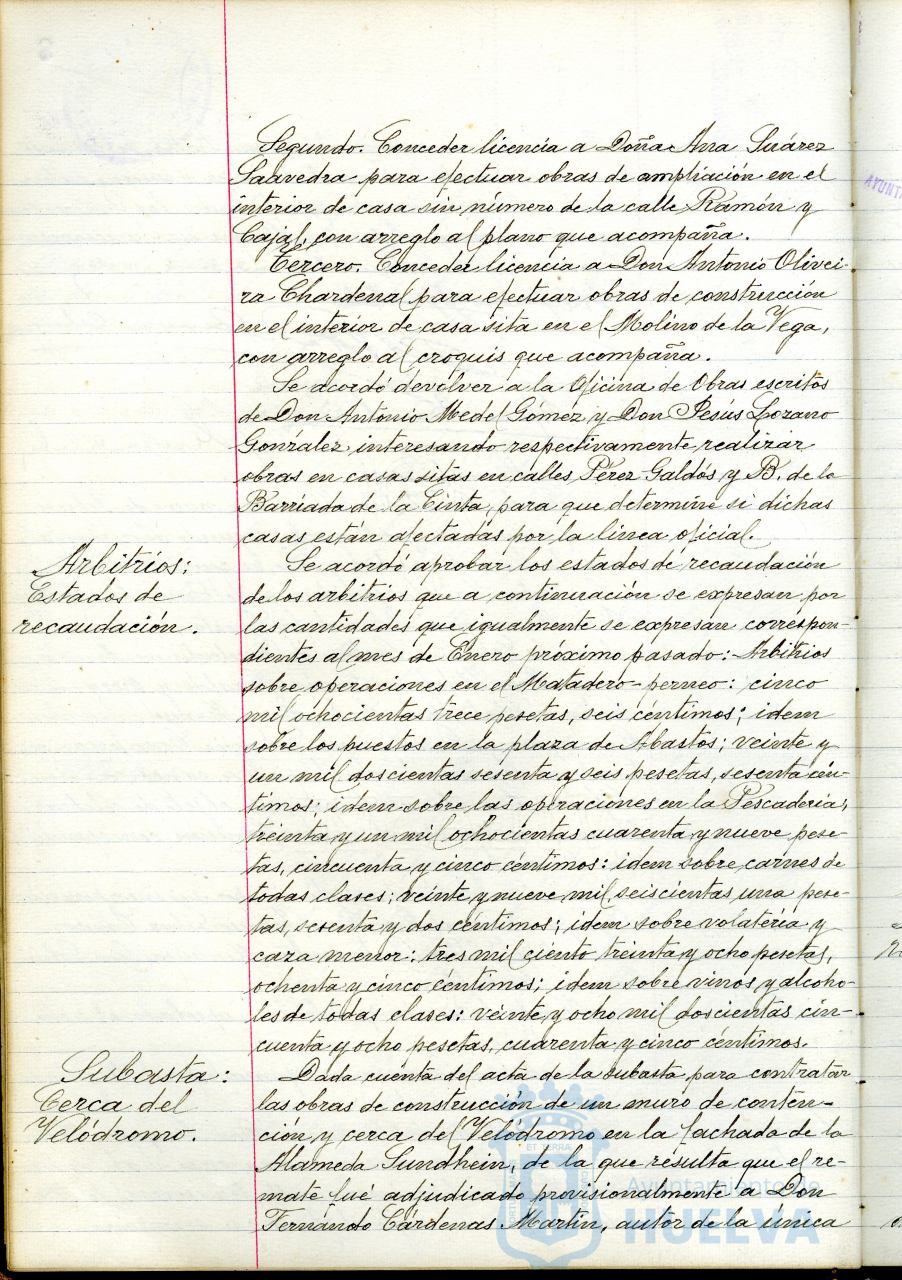 Segundo. Conceder licencia a Doña Ana Suárez
Saavedra para efectuar obras de ampliación en el
interior de casa sin número de la calle Ramón y
Cajal, con arreglo al plano que acompaña.
Tercero. Conceder licencia a Don Antonio Olivei-
ra Chardenal para efectuar obras de construcción
en el interior de casa sita en el Molino de la Vega,
con arreglo al croquis que acompaña.
Se acordó devolver a la Oficina de Obras escritos
de Don Antonio Medel Gómez y Don Jesús Lozano
González interesando respectivamente realizar
obras en casas sitas en calles Pérez Galdós y B. de la
Barriada de la Cinta, para que determine si dichas
casas están afectadas por la línea oficial.
Arbitrios:
Estados de
recaudación.
Se acordó aprobar los estados de recaudación
de los arbitrios que a continuación se expresan por
las cantidades que igualmente se expresan correspon-
dientes al mes de Enero próximo pasado: Arbitrios
sobre operaciones en el Matadero-perneo: cinco
mil ochocientas trece pesetas, seis céntimos; idem
sobre los puestos en la plaza de Abastos; veinte y
un mil doscientas sesenta y seis pesetas, sesenta cén-
timos; idem sobre las operaciones en la Pescadería;
treinta y un mil ochocientas cuarenta y nueve pese-
tas, cincuenta y cinco céntimos: idem sobre carnes de
todas clases; veinte y nueve mil seiscientas una pese-
tas, sesenta y dos céntimos; idem sobre volatería y
caza menor: tres mil ciento treinta y ocho pesetas,
ochenta y cinco céntimos; idem sobre vinos y alcoho-
les de todas clases: veinte y ocho mil doscientas cin-
cuenta y ocho pesetas, cuarenta y cinco céntimos.
Subasta:
Cerca del
Velódromo.
Dada cuenta del acta de la subasta para contratar
las obras de construcción de un muro de conten-
ción y cerca del Velódromo en la fachada de la
Alameda Sundhein, de la que resulta que el re-
mate fué adjudicado provisionalmente a Don
Fernando Cárdenas Martin, autor de la única
Ayuntamiento de
HUELVA